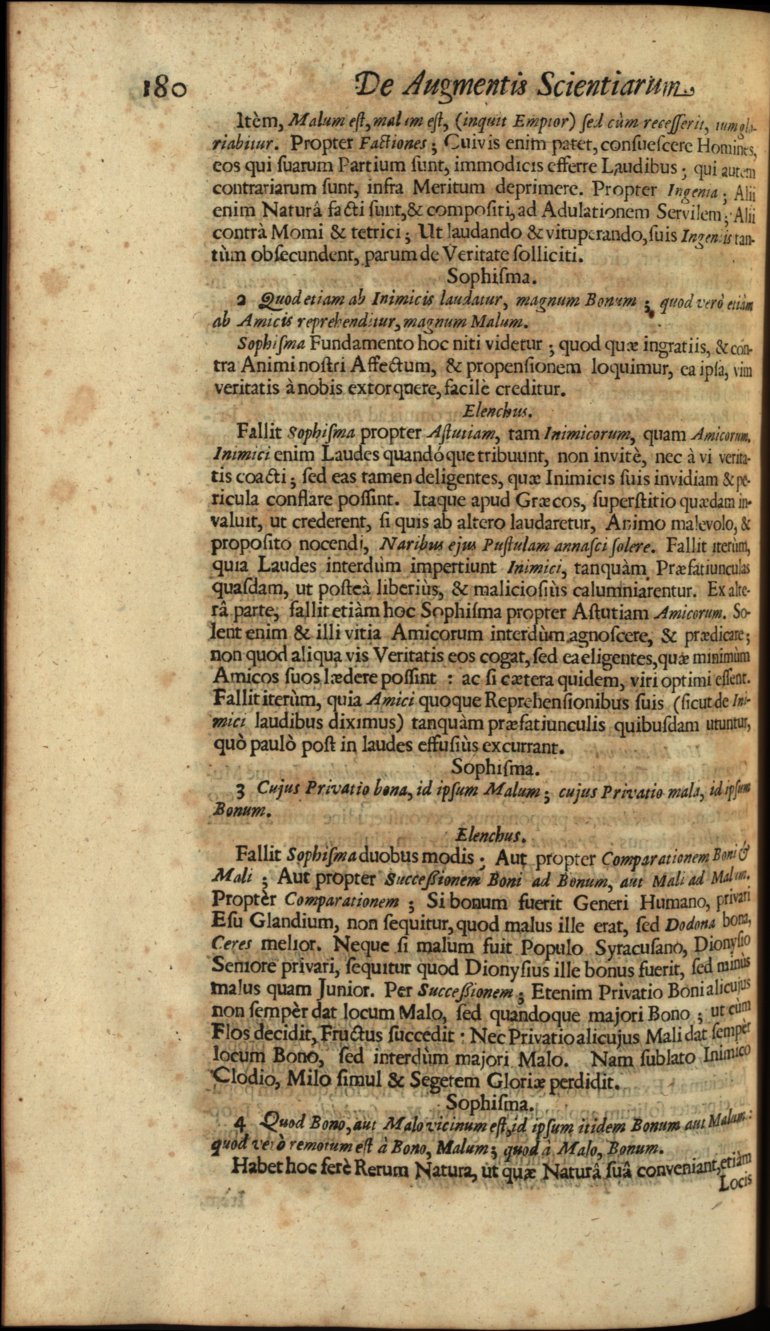 180 De Augmentis Scientiarum
Itèm, Malum eſt, malum eſt, (inquit Emptor) ſed cùm receſſerit, tum glo-
riabitur. Propter Factiones; Cuivis enim patet, conſueſcere Homines,
eos qui ſuarum Partium ſunt, immodicis efferre Laudibus; qui autem
contrariarum ſunt, infra Meritum deprimere. Propter Ingenia; Alii
enim Naturâ facti ſunt, & compoſiti, ad Adulationem Servilem; Alii
contrà Momi & tetrici; Ut laudando & vituperando, ſuis Ingeniis tan-
tùm obſecundent, parum de Veritate ſolliciti.
Sophiſma.
2 Quod etiam ab Inimicis laudatur, magnum Bonum; quod verò etiàm
ab Amicis reprehenditur, magnum Malum.
Sophiſma Fundamento hoc niti videtur; quod quæ ingratiis, & con-
tra Animi noſtri Affectum, & propenſionem loquimur, ea ipſa, vim
veritatis à nobis extorquere, facilè creditur.
Elenchus.
Fallit Sophiſma propter Aſtutiam, tam Inimicorum, quam Amicorum.
Inimici enim Laudes quandóque tribuunt, non invitè, nec à vi verita-
tis coacti; ſed eas tamen deligentes, quæ Inimicis ſuis invidiam & pe-
ricula conflare poſſint. Itaque apud Græcos, ſuperſtitio quædam in-
valuit, ut crederent, ſi quis ab altero laudaretur, Animo malevolo, &
propoſito nocendi, Naribus ejus Puſtulam annaſci ſolere. Fallit iterùm,
quia Laudes interdùm impertiunt Inimici, tanquàm Præfatiunculas
quaſdam, ut poſteà liberiùs, & malicioſiùs calumniarentur. Ex alte-
râ parte, fallit etiàm hoc Sophiſma propter Aſtutiam Amicorum. So-
lent enim & illi vitia Amicorum interdùm agnoſcere, & prædicare;
non quod aliqua vis Veritatis eos cogat, ſed ea eligentes, quæ minimùm
Amicos ſuos lædere poſſint : ac ſi cætera quidem, viri optimi eſſent.
Fallit iterùm, quia Amici quoque Reprehenſionibus ſuis (ſicut de Ini-
mici laudibus diximus) tanquàm præfatiunculis quibuſdam utuntur,
quò paulò poſt in laudes effuſiùs excurrant.
Sophiſma.
3 Cujus Privatio bona, id ipſum Malum; cujus Privatio mala, id ipſum
Bonum.
Elenchus.
Fallit Sophiſma duobus modis; Aut propter Comparationem Boni &
Mali; Aut propter Succeßionem Boni ad Bonum, aut Mali ad Malum.
Proptèr Comparationem; Si bonum fuerit Generi Humano, privari
Eſu Glandium, non ſequitur, quod malus ille erat, ſed Dodona bona,
Ceres melior. Neque ſi malum fuit Populo Syracuſano, Dionyſio
Seniore privari, ſequitur quod Dionyſius ille bonus fuerit, ſed minùs
malus quam Junior. Per Succeßionem; Etenim Privatio Boni alicujus
non ſempèr dat locum Malo, ſed quandoque majori Bono; ut cùm
Flos decidit, Fructus ſuccedit : Nec Privatio alicujus Mali dat ſempèr
locum Bono, ſed interdùm majori Malo. Nam ſublato Inimico
Clodio, Milo ſimul & Segetem Gloriæ perdidit.
Sophiſma.
4 Quod Bono, aut Malo vicinum eſt, id ipſum itidem Bonum aut Malum:
quod verò remotum eſt à Bono, Malum; quod à Malo, Bonum.
Habet hoc ferè Rerum Natura, ut quæ Naturâ ſuâ conveniant, etiàm
Locis